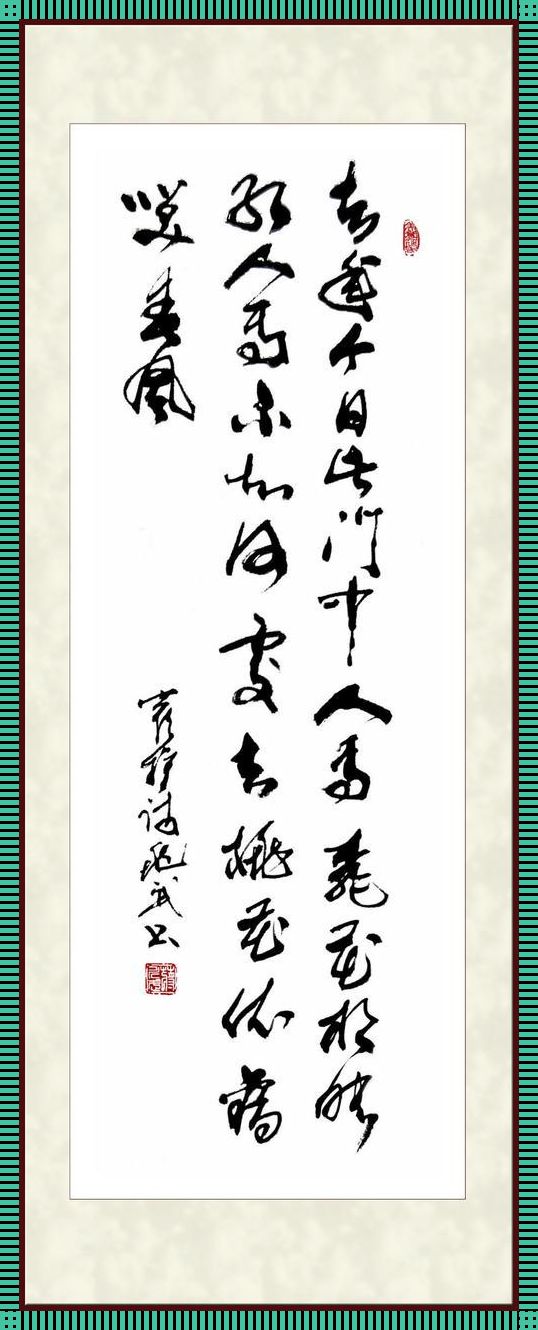 去年今日此门中人面桃花相映
红人面不知何处去桃花依舊
笑春風
崔护诗 武书